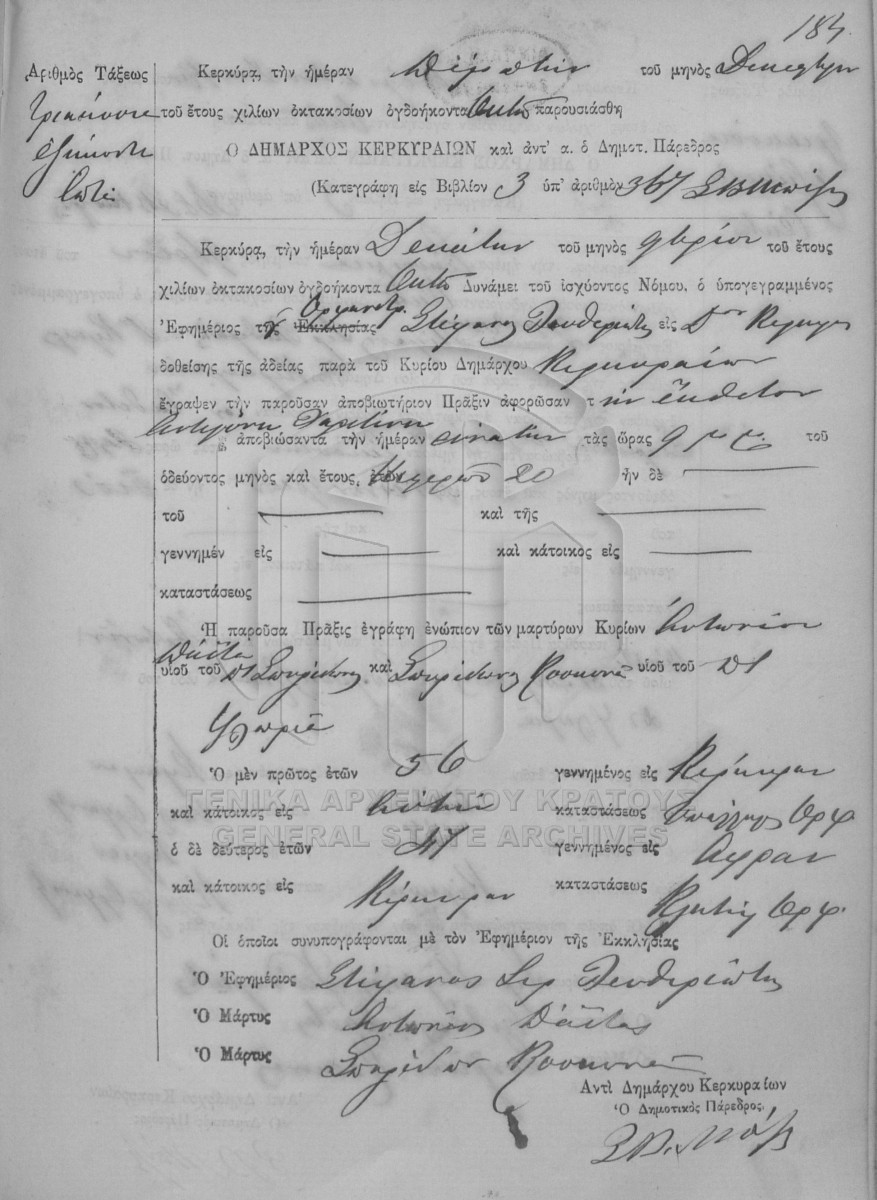 184.
Ἀριθμὸς Τάξεως
Τριακόσια
ἑξήκοντα
ἑπτά
Κερκύρᾳ, τὴν ἡμέραν Πέμπτην τοῦ μηνὸς
τοῦ ἔτους χιλίων ὀκτακοσίων ὀγδοήκοντα Ὀκτὼ παρουσιάσθη
Ο ΔΗΜΑΡΧΟΣ ΚΕΡΚΥΡΑΙΩΝ καὶ ἀντ' α. ὁ Δημοτ. Πάρεδρος
(Κατεγράφη εἰς Βιβλίον 3 ὑπ' ἀριθμὸν 367
Κερκύρᾳ, τὴν ἡμέραν Δεκάτην τοῦ μηνὸς 9βρίου τοῦ ἔτους
χιλίων ὀκτακοσίων ὀγδοήκοντα Ὀκτὼ Δυνάμει τοῦ ἰσχύοντος Νόμου, ὁ ὑπογεγραμμένος
Ὀρφανοτρ.
Ἐφημέριος τῆς Ἐκκλησίας Στέφανος εἰς
δοθείσης τῆς ἀδείας παρὰ τοῦ Κυρίου Δημάρχου Κερκυραίων
ἔγραψεν τὴν παροῦσαν ἀποβιωτήριον Πρᾶξιν ἀφορῶσαν τ ὴν ἔκθετον
Ἀντιγόνη
ἀποβιώσαντα τὴν ἡμέραν ἐνάτην τὰς ὥρας 9 μ.μ. τοῦ
ὁδεύοντος μηνὸς καὶ ἔτους, ἐτῶν ἡμερῶν 20 ἦν δὲ
τοῦ καὶ τῆς
γεννημέν εἰς καὶ κάτοικος εἰς
καταστάσεως
Ἡ παροῦσα Πρᾶξις ἐγράφη ἐνώπιον τῶν μαρτύρων Κυρίων Ἀντωνίου
Δάϊτα
υἱοῦ τοῦ Σπυρίδωνος καὶ Σπυρίδωνος Κοσκινᾶ υἱοῦ τοῦ
Ὁ μὲν πρῶτος ἐτῶν 56 γεννημένος εἰς Κέρκυραν
καὶ κάτοικος εἰς αὐτὴν καταστάσεως ὑπάλληλος Ὀρφ
ὁ δὲ δεύτερος ἐτῶν 47 γεννημένος εἰς
καὶ κάτοικος εἰς Κέρκυραν καταστάσεως Κλητὴρ Ὀρφ.
Οἱ ὁποῖοι συνυπογράφονται μὲ τὸν Ἐφημέριον τῆς Ἐκκλησίας
Ὁ Ἐφημέριος Στέφανος
Ὁ Μάρτυς Ἀντώνιος Δάϊτας
Ὁ Μάρτυς Σπυρίδων Κοσκινᾶ
Ἀντὶ Δημάρχου Κερκυραίων
Ὁ Δημοτικὸς Πάρεδρος,
ΓΕΝΙΚΑ ΑΡΧΕΙΑ ΤΟΥ ΚΡΑΤΟΥΣ
GENERAL STATE ARCHIVES